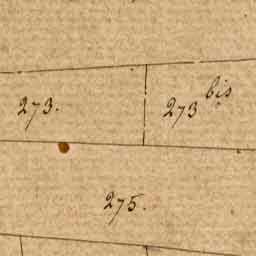 273.
273 bis
275.